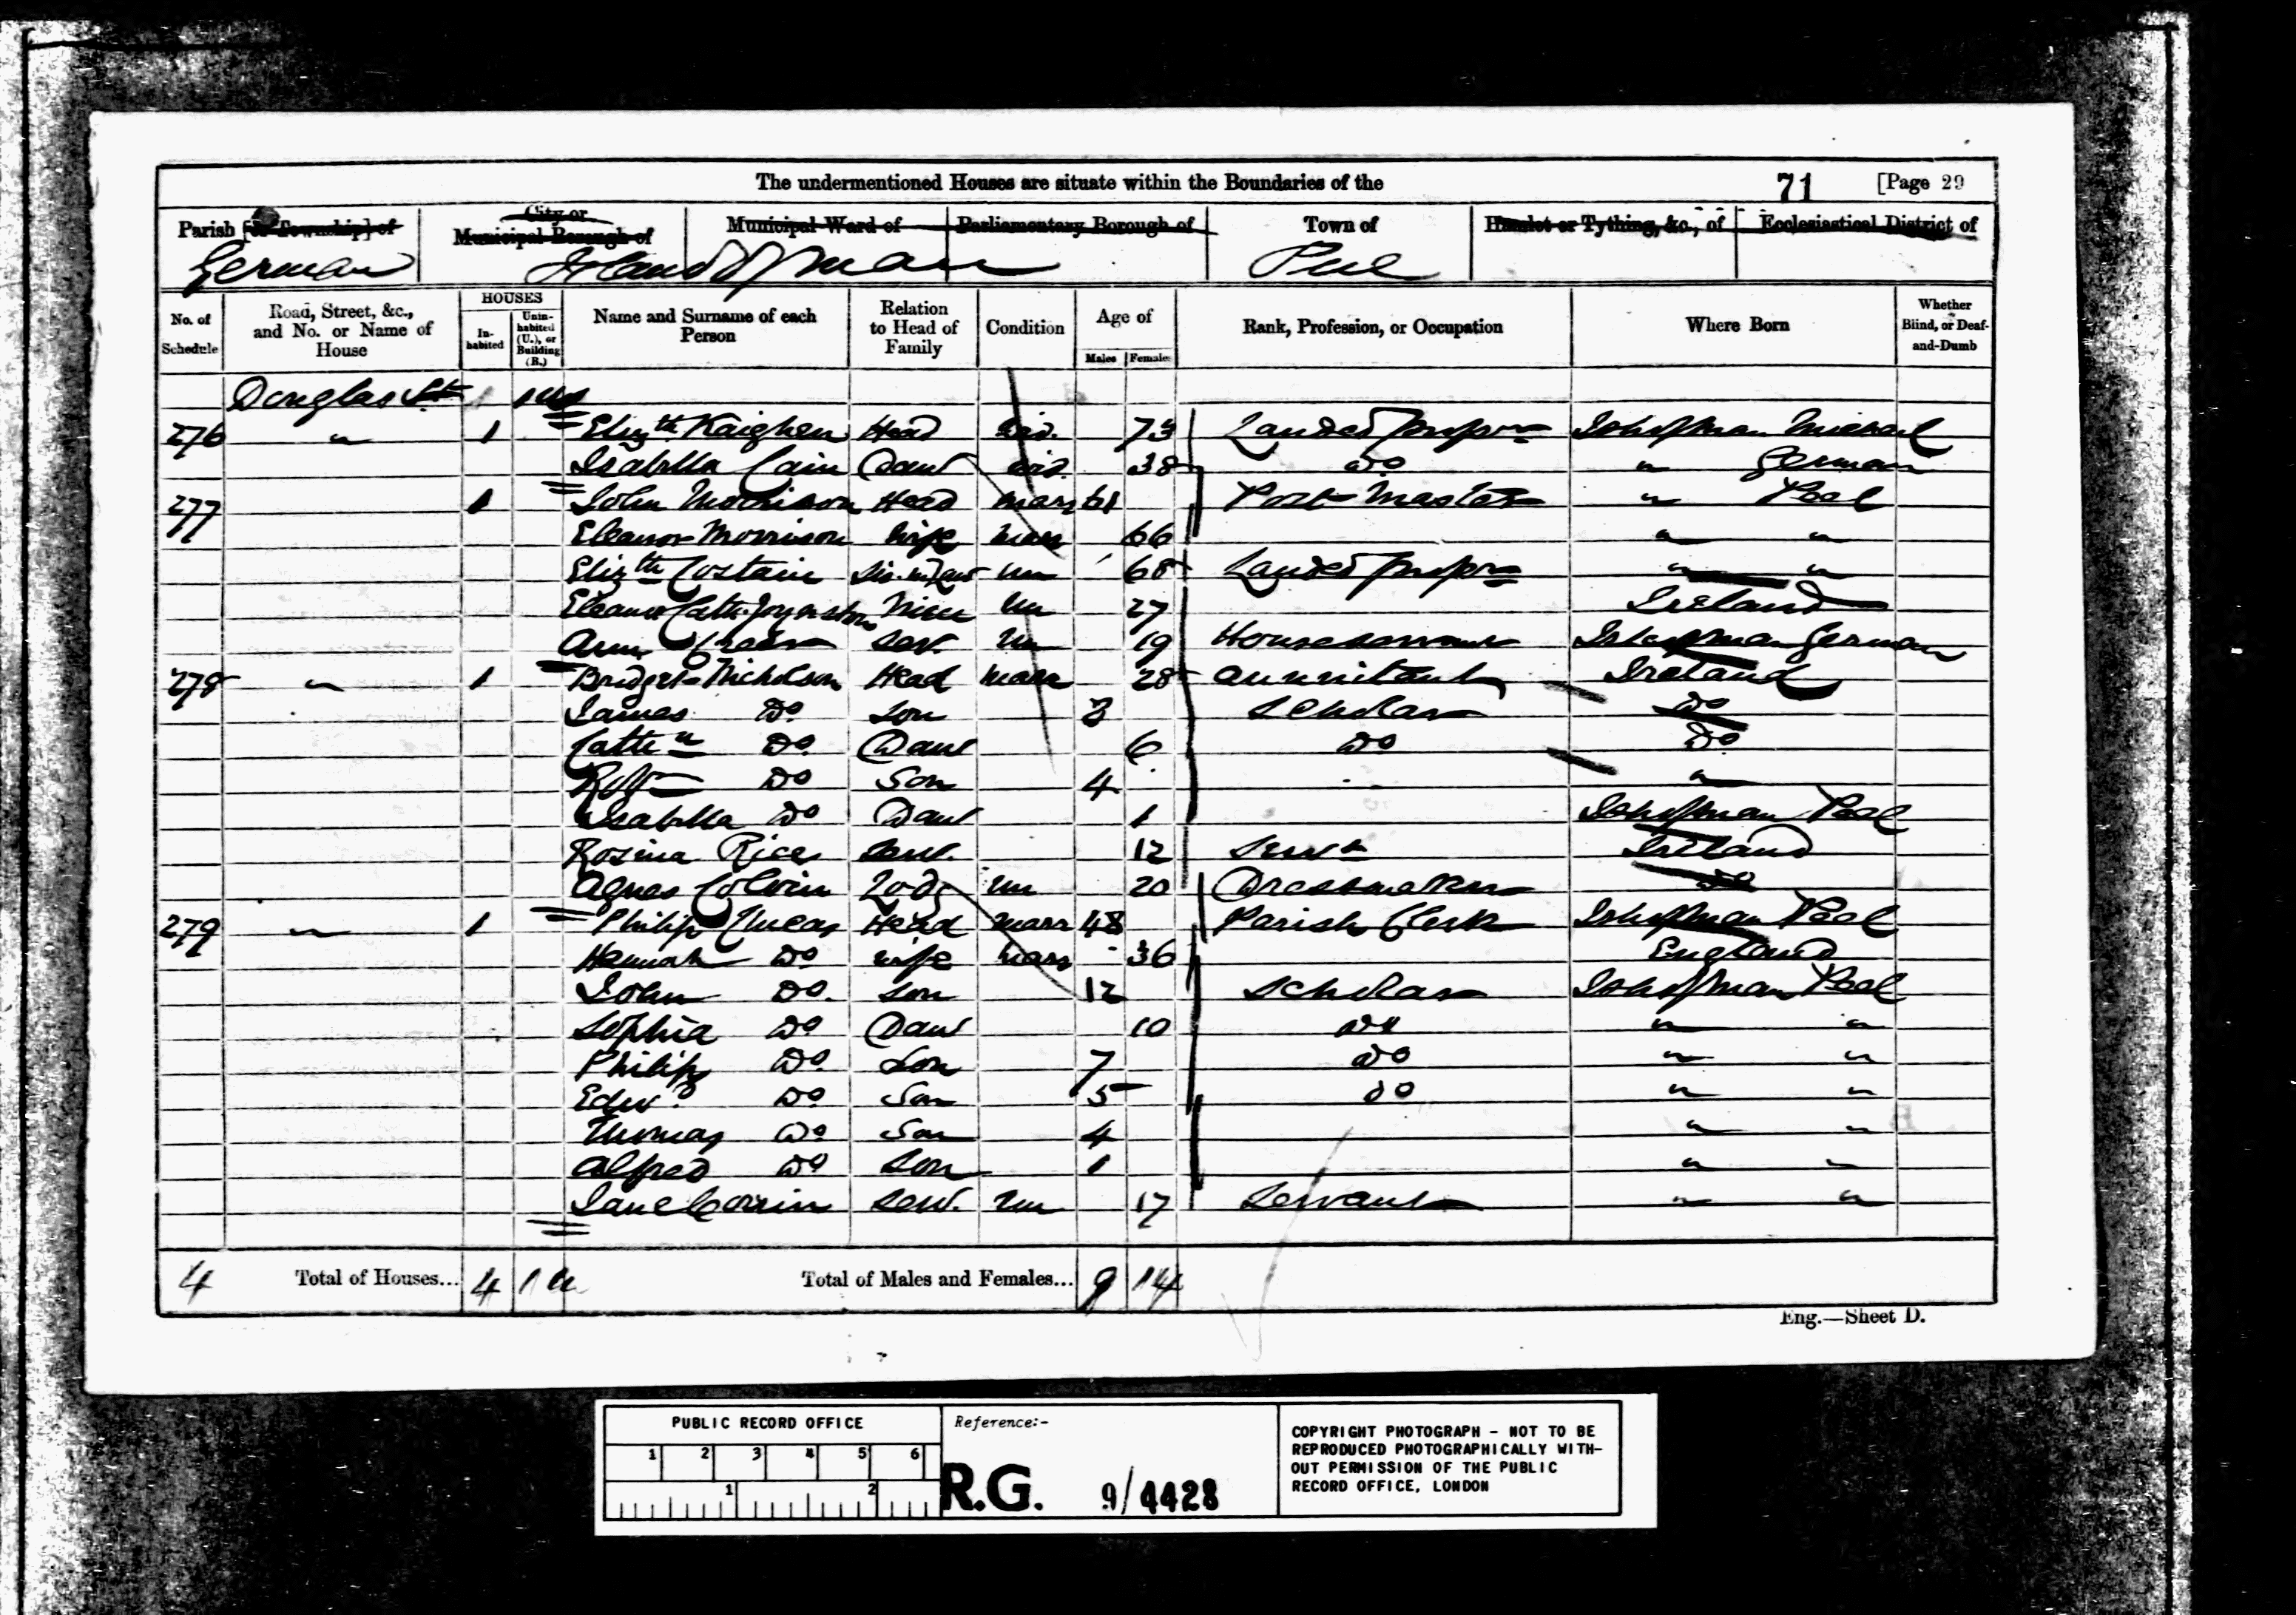 The undermentioned Houses are situate within the Boundaries of the 71 [Page 29
Parish [or Township] of City or Municipal Borough of Municipal Ward of Parliamentary Borough of Town of Hamlet or Tything, &c., of Ecclesiastical District of
German Island of Man Peel
No. of Schedule Road, Street, &c., and No. or Name of House HOUSES Inhabited Uninhabited (U.), or Building (B.) Name and Surname of each Person Relation to Head of Family Condition Age of Males Females Rank, Profession, or Occupation Where Born Whether Blind, or Deaf-and-Dumb
Douglas St
276 " 1 Elizth Kaighen Head Wid. 73 Landed Propr Isle of Man Michael
Isabella Cain Daur wid. 38 Do " German
277 1 John Morrison Head Marr 61 Post Master " Peel
Eleanor Morrison Wife Marr 66 " "
Elizth Costain Sis. in Law Un 68 Landed Propr " "
Eleanor Cath. Niece Un 27 Ireland
Ann Serv. Un 19 House Servant Isle of Man German
278 " 1 Bridget Nicholson Head Marr 28 Annuitant Ireland
James Do Son Scholar Do
Do Daur 6 Do Do
Robt Do Son 4 "
Isabella Do Daur 1 Isle of Man Peel
Rosina Rice Serv. 12 Servt Ireland
Agnes Colvin Lodg Un 20 Dressmaker Do
279 " 1 Philip Lucas Head Marr 48 Parish Clerk Isle of Man Peel
Hannah Do Wife Marr 36 England
John Do. Son 12 Scholar Isle of Man Peel
Sophia Do Daur 10 Do " "
Philip Do. Son 7 Do " "
Edwd Do. Son 5 Do " "
Thomas Do Son 4 " "
Alfred Do Son 1 " "
Jane Corrin Serv. Un 17 Servant " "
4 Total of Houses... 4 1 u Total of Males and Females... 9 14
Eng.—Sheet D.
PUBLIC RECORD OFFICE
1 2 3 4 5 6
1 2
Reference:-
R.G. 9/4428
COPYRIGHT PHOTOGRAPH - NOT TO BE
REPRODUCED PHOTOGRAPHICALLY WITH-
OUT PERMISSION OF THE PUBLIC
RECORD OFFICE, LONDON